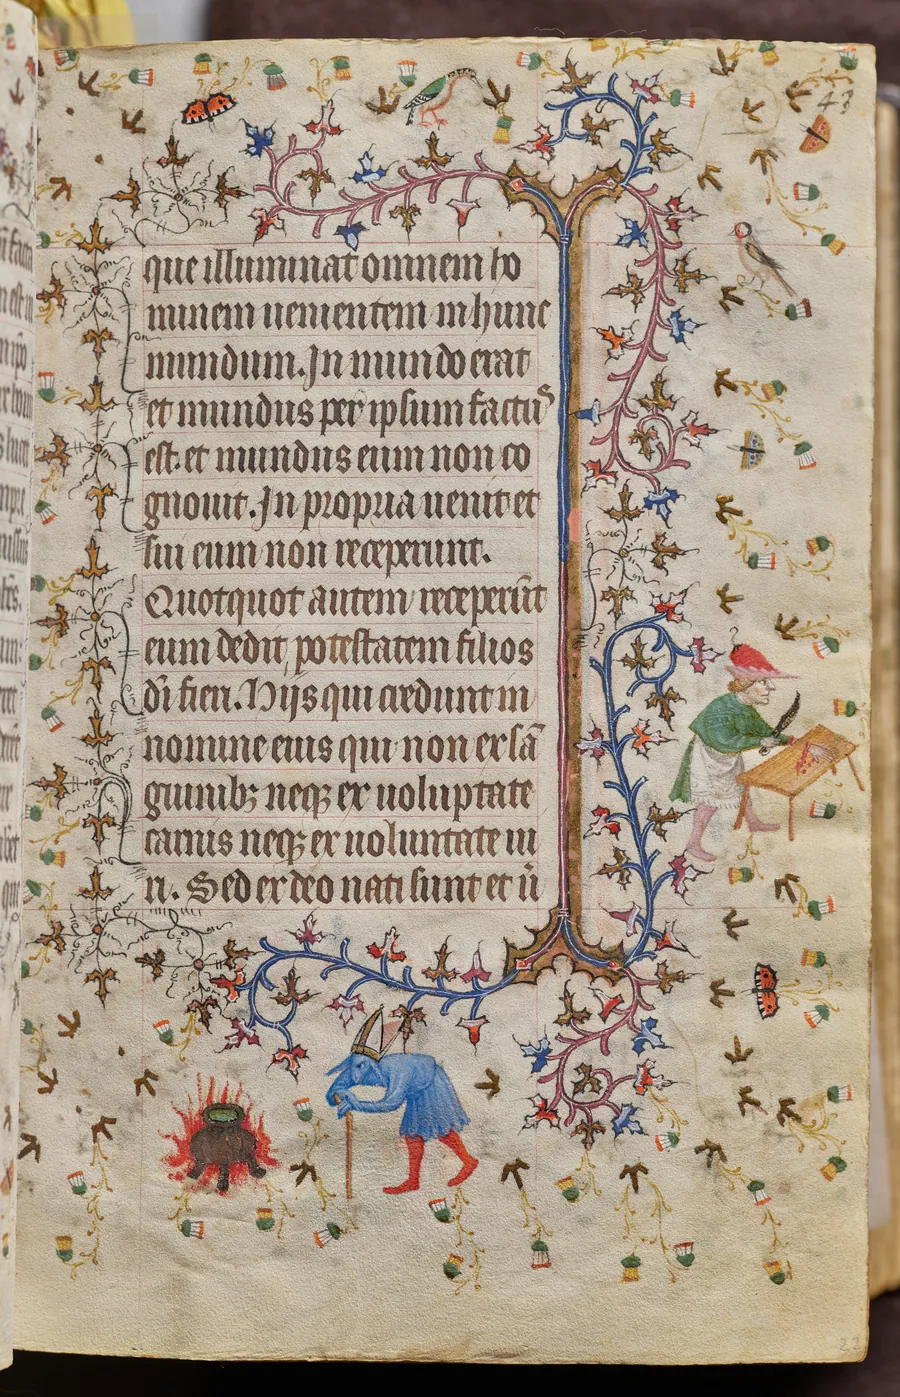 48
que illuminat omnem ho
minem uenientem in hunc
mundum. In mundo erat
et mundus per ipsum factu᷒
est. et mundus eum non co
gnouit. In propria uenit et
sui eum non receperunt.
Quotquot autem receper̄ut
eum dedit potestatem filios
dī fieri. Hijs qui credunt in
nomine eius qui non ex sā
guinibꝫ neqꝫ ex uoluptate
carnis neqꝫ ex uoluntate ui
ri. Sed ex deo nati sunt et ū